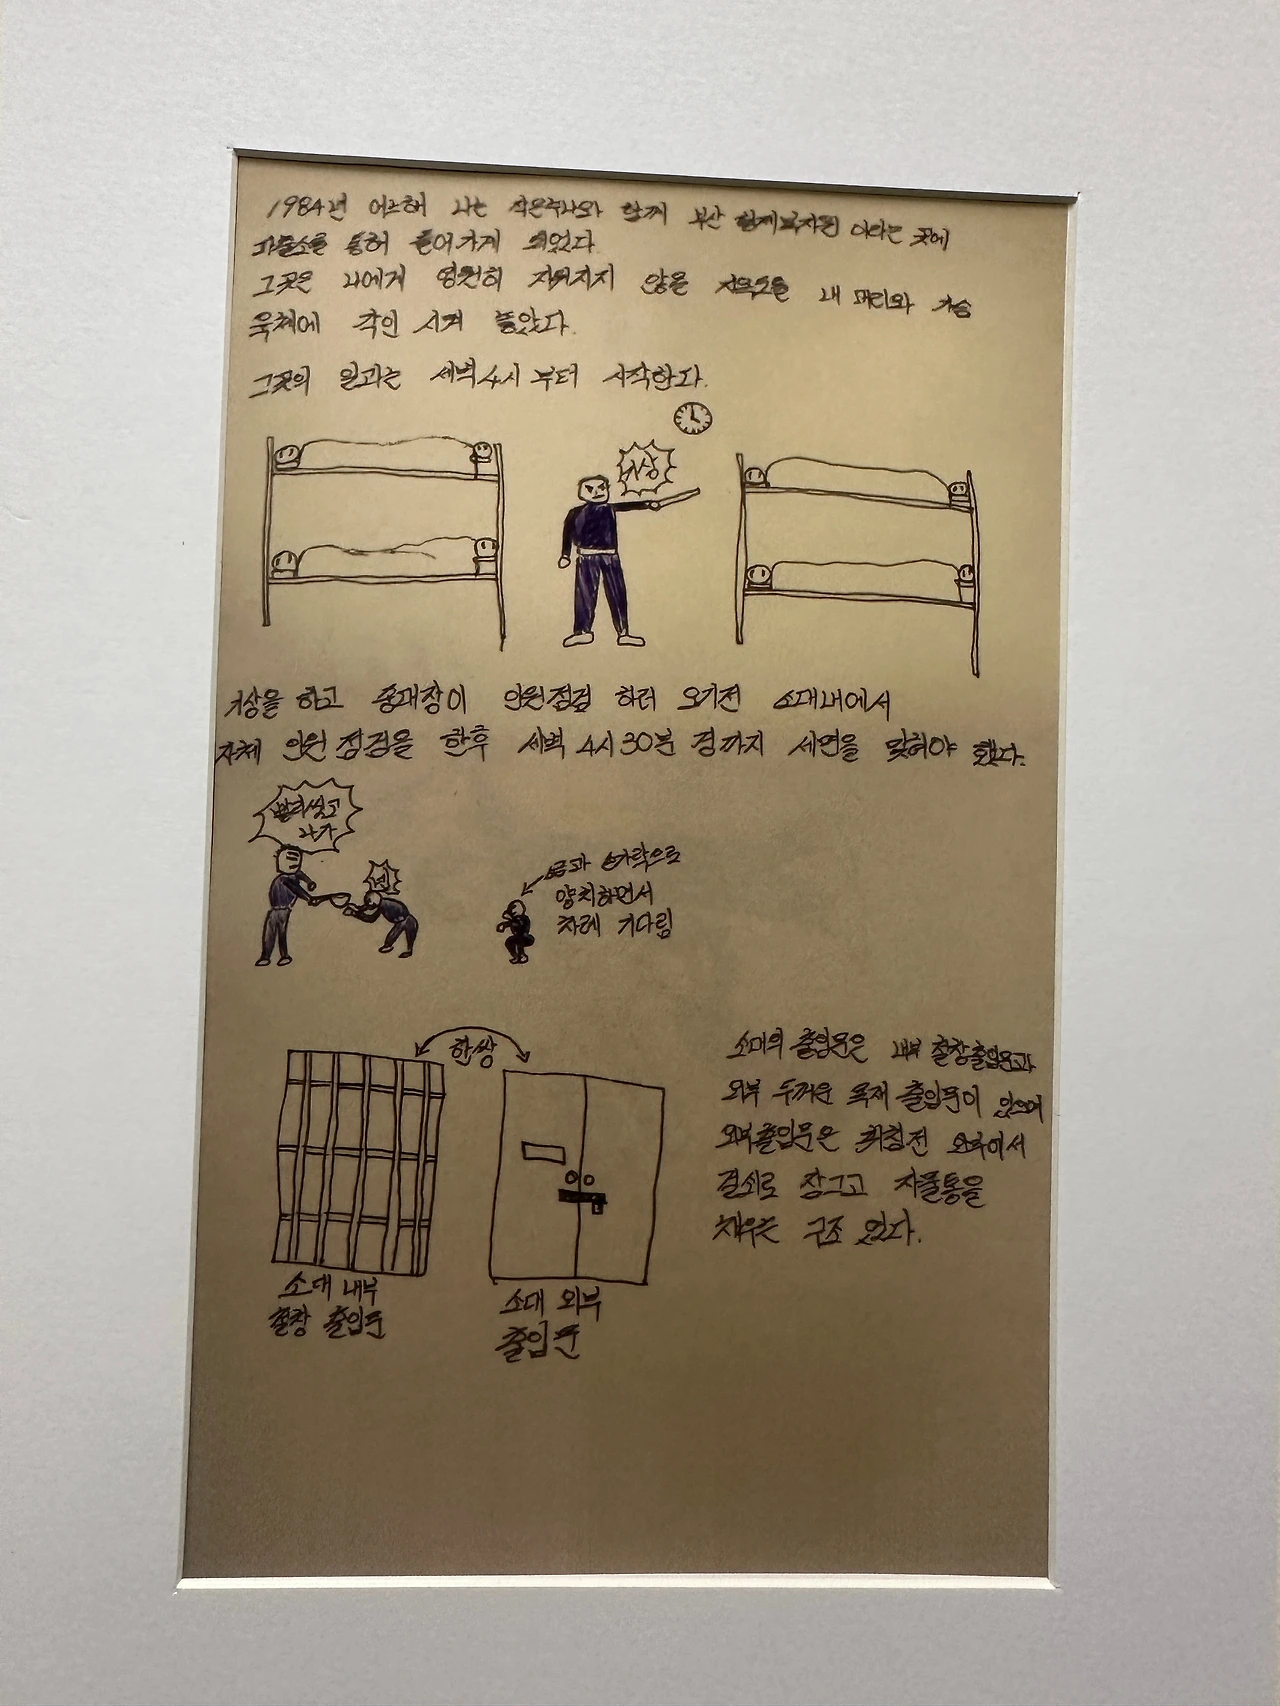 1984년 어느해 나는 작은누나와 함께 부산 형제복지원 이라는 곳에
파출소를 통해 들어가게 되었다
그곳은 나에게 영원히 지워지지 않을 지옥소를 내 머리와 가슴
육체에 각인 시켜 놓았다.
그곳의 일과는 새벽4시 부터 시작한다.
기상
기상을 하고 중대장이 인원점검 하러 오기전 소대내에서
자체 인원 점검을 한후 새벽 4시30분 경까지 세면을 맞혀야 했다.
빨리씻고
나가
넷
소금과 손가락으로
양치하면서
차례 기다림
한쌍
소대의 출입문은 내부 철창출입문과
외부 두꺼운 목재 출입문이 있으며
외부출입문은 취침전 외부에서
걸쇠로 잠그고 자물통을
채우는 구조 였다.
소대 내부
철창 출입문
소대 외부
출입문